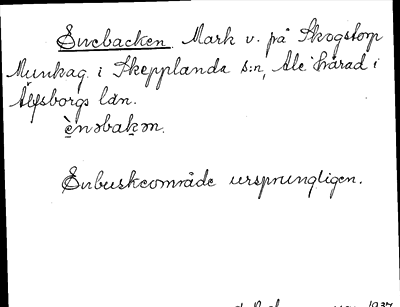 Enebacken Mark v. på Skogstorp
Munkag. i Skepplanda s:n, Ale härad i
Älfsborgs län.
ènəbakən.
Enbuskeområde ursprungligen.
1937